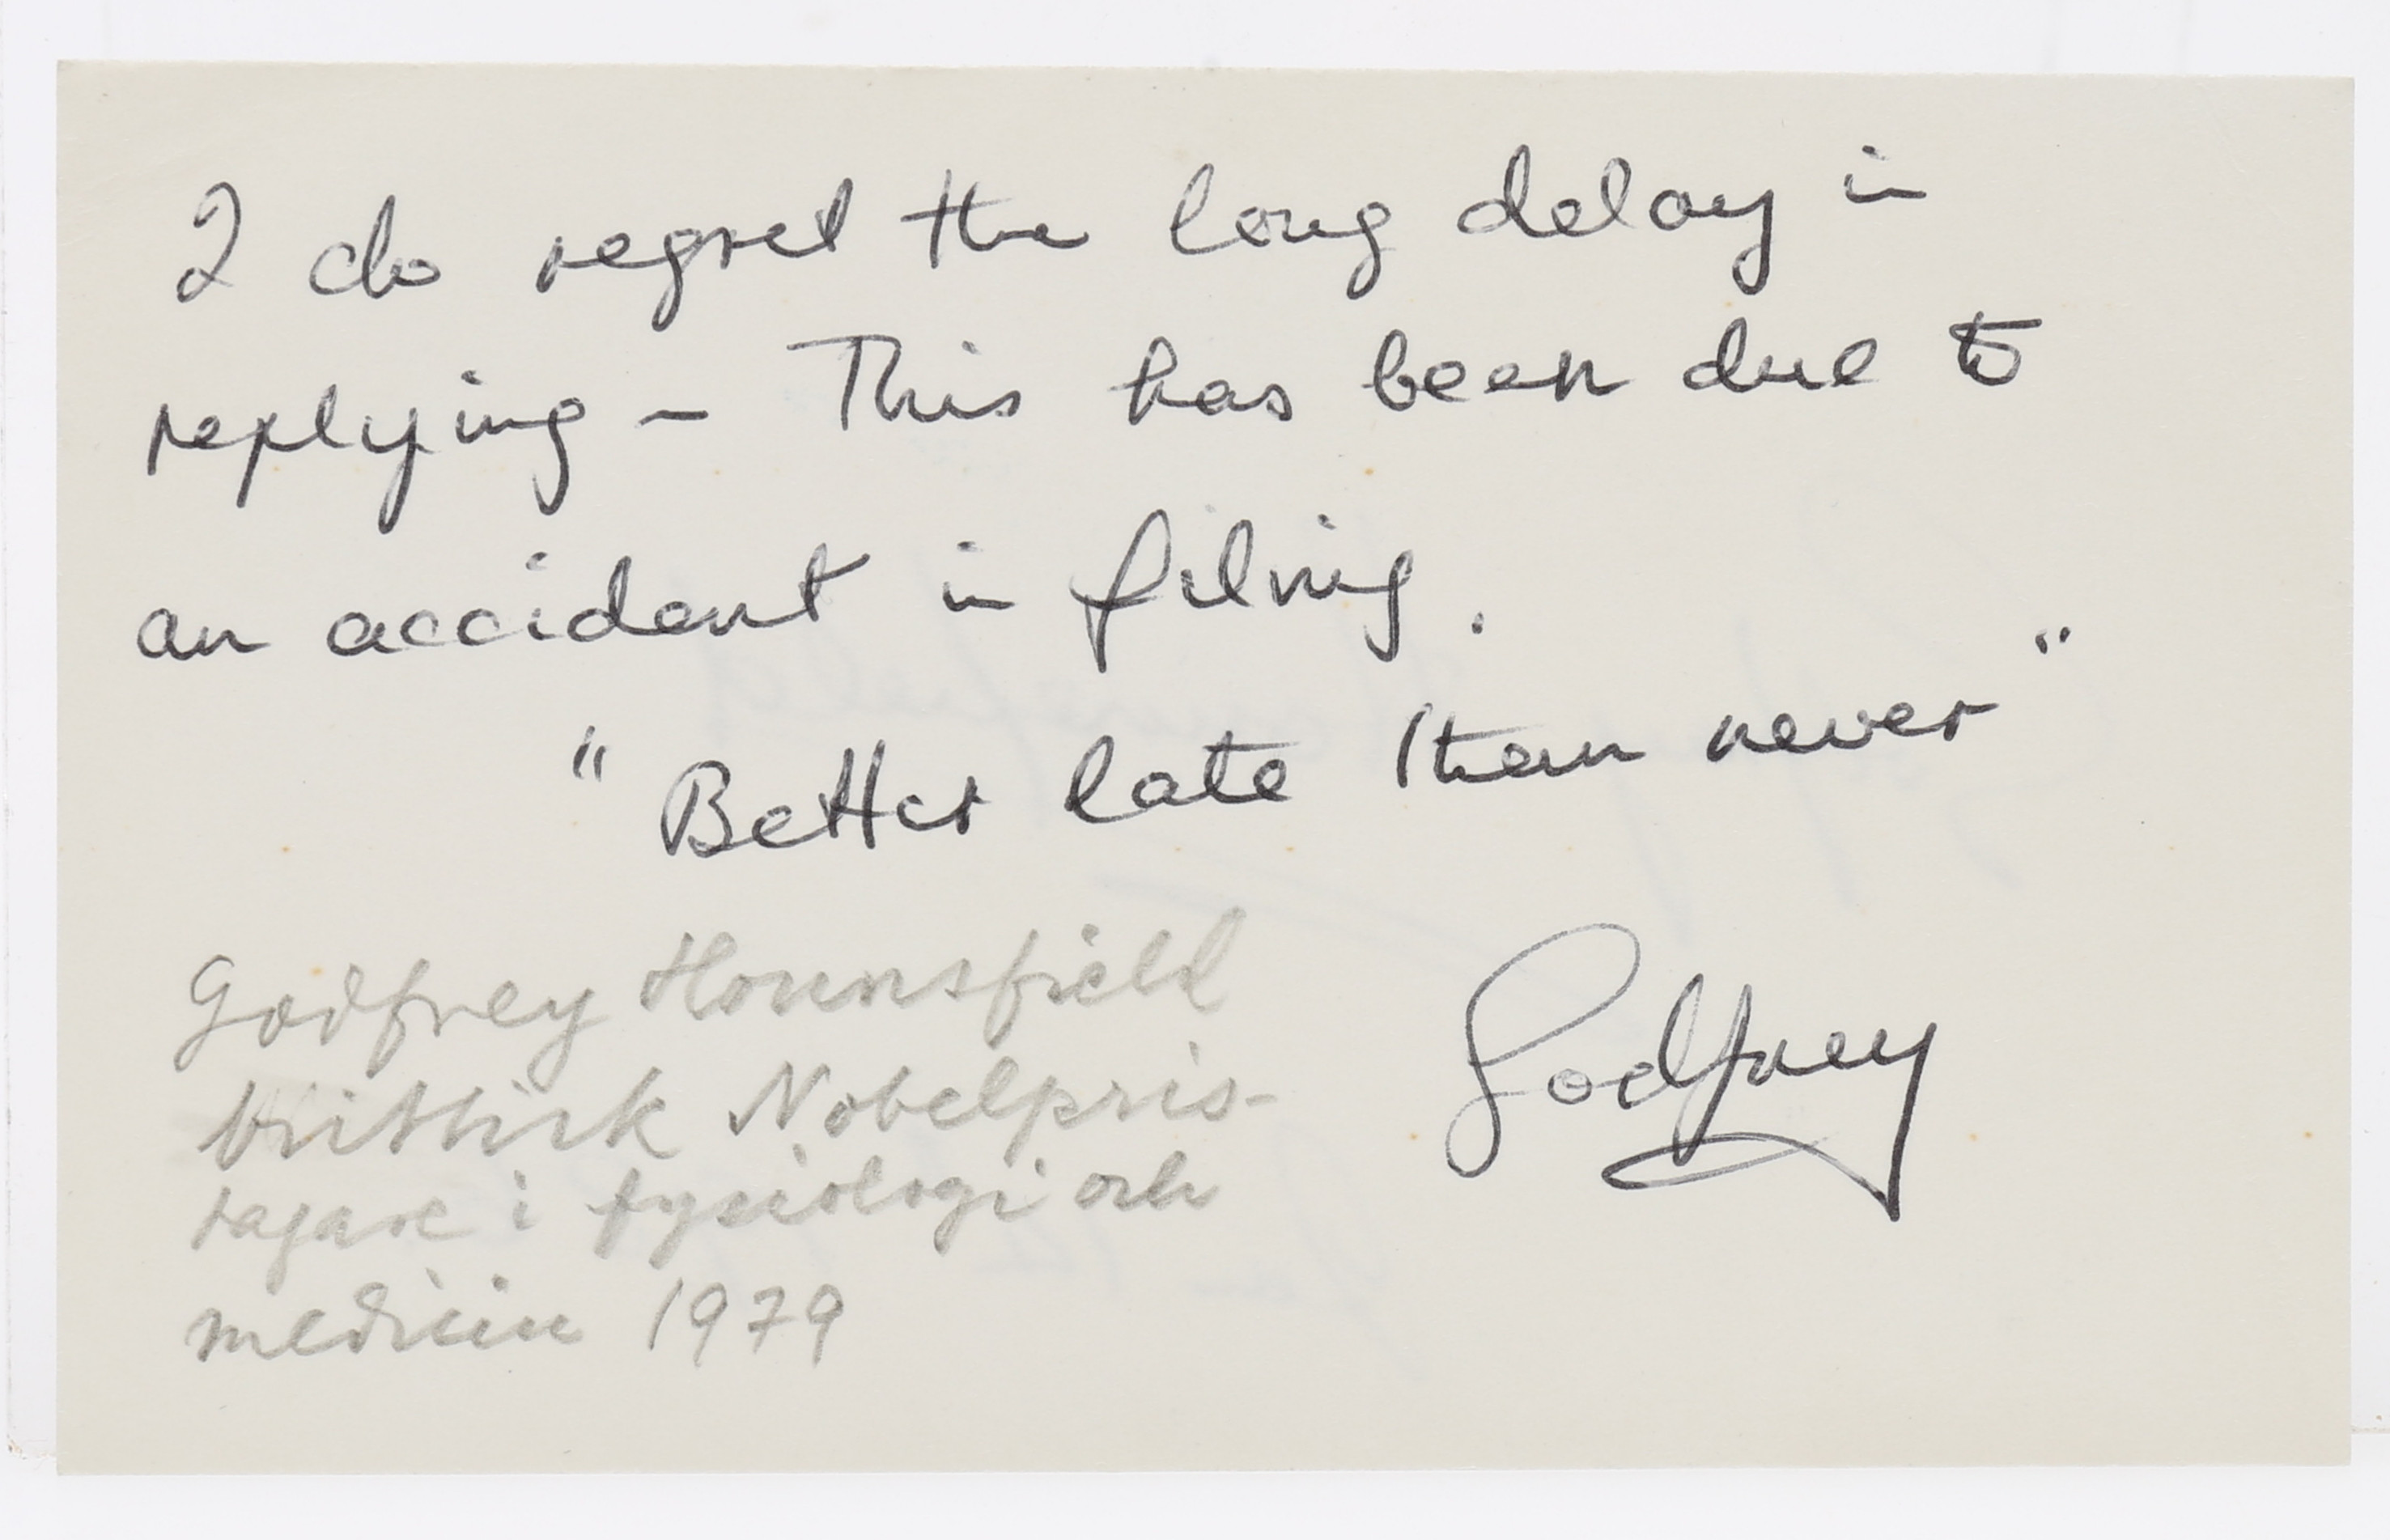 I do regret the long delay in
replying – This has been due to
an accident in filing.
"Better late than never"
Godfrey
Godfrey Hounsfield
brittisk Nobelpris-
tagare i fysiologi och
medicin 1979